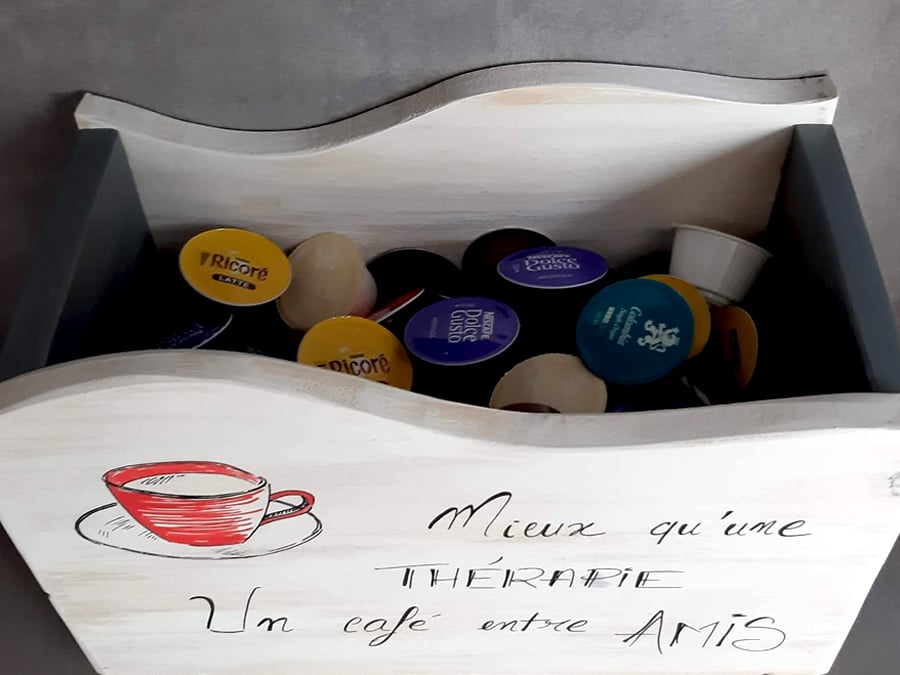 Ricoré
LATTE
NESCAFÉ
Dolce
Gusto
NESCAFÉ
Dolce
Gusto
Colombia
Ricoré
Mieux qu'une
THÉRAPIE
Un café entre
AMIS